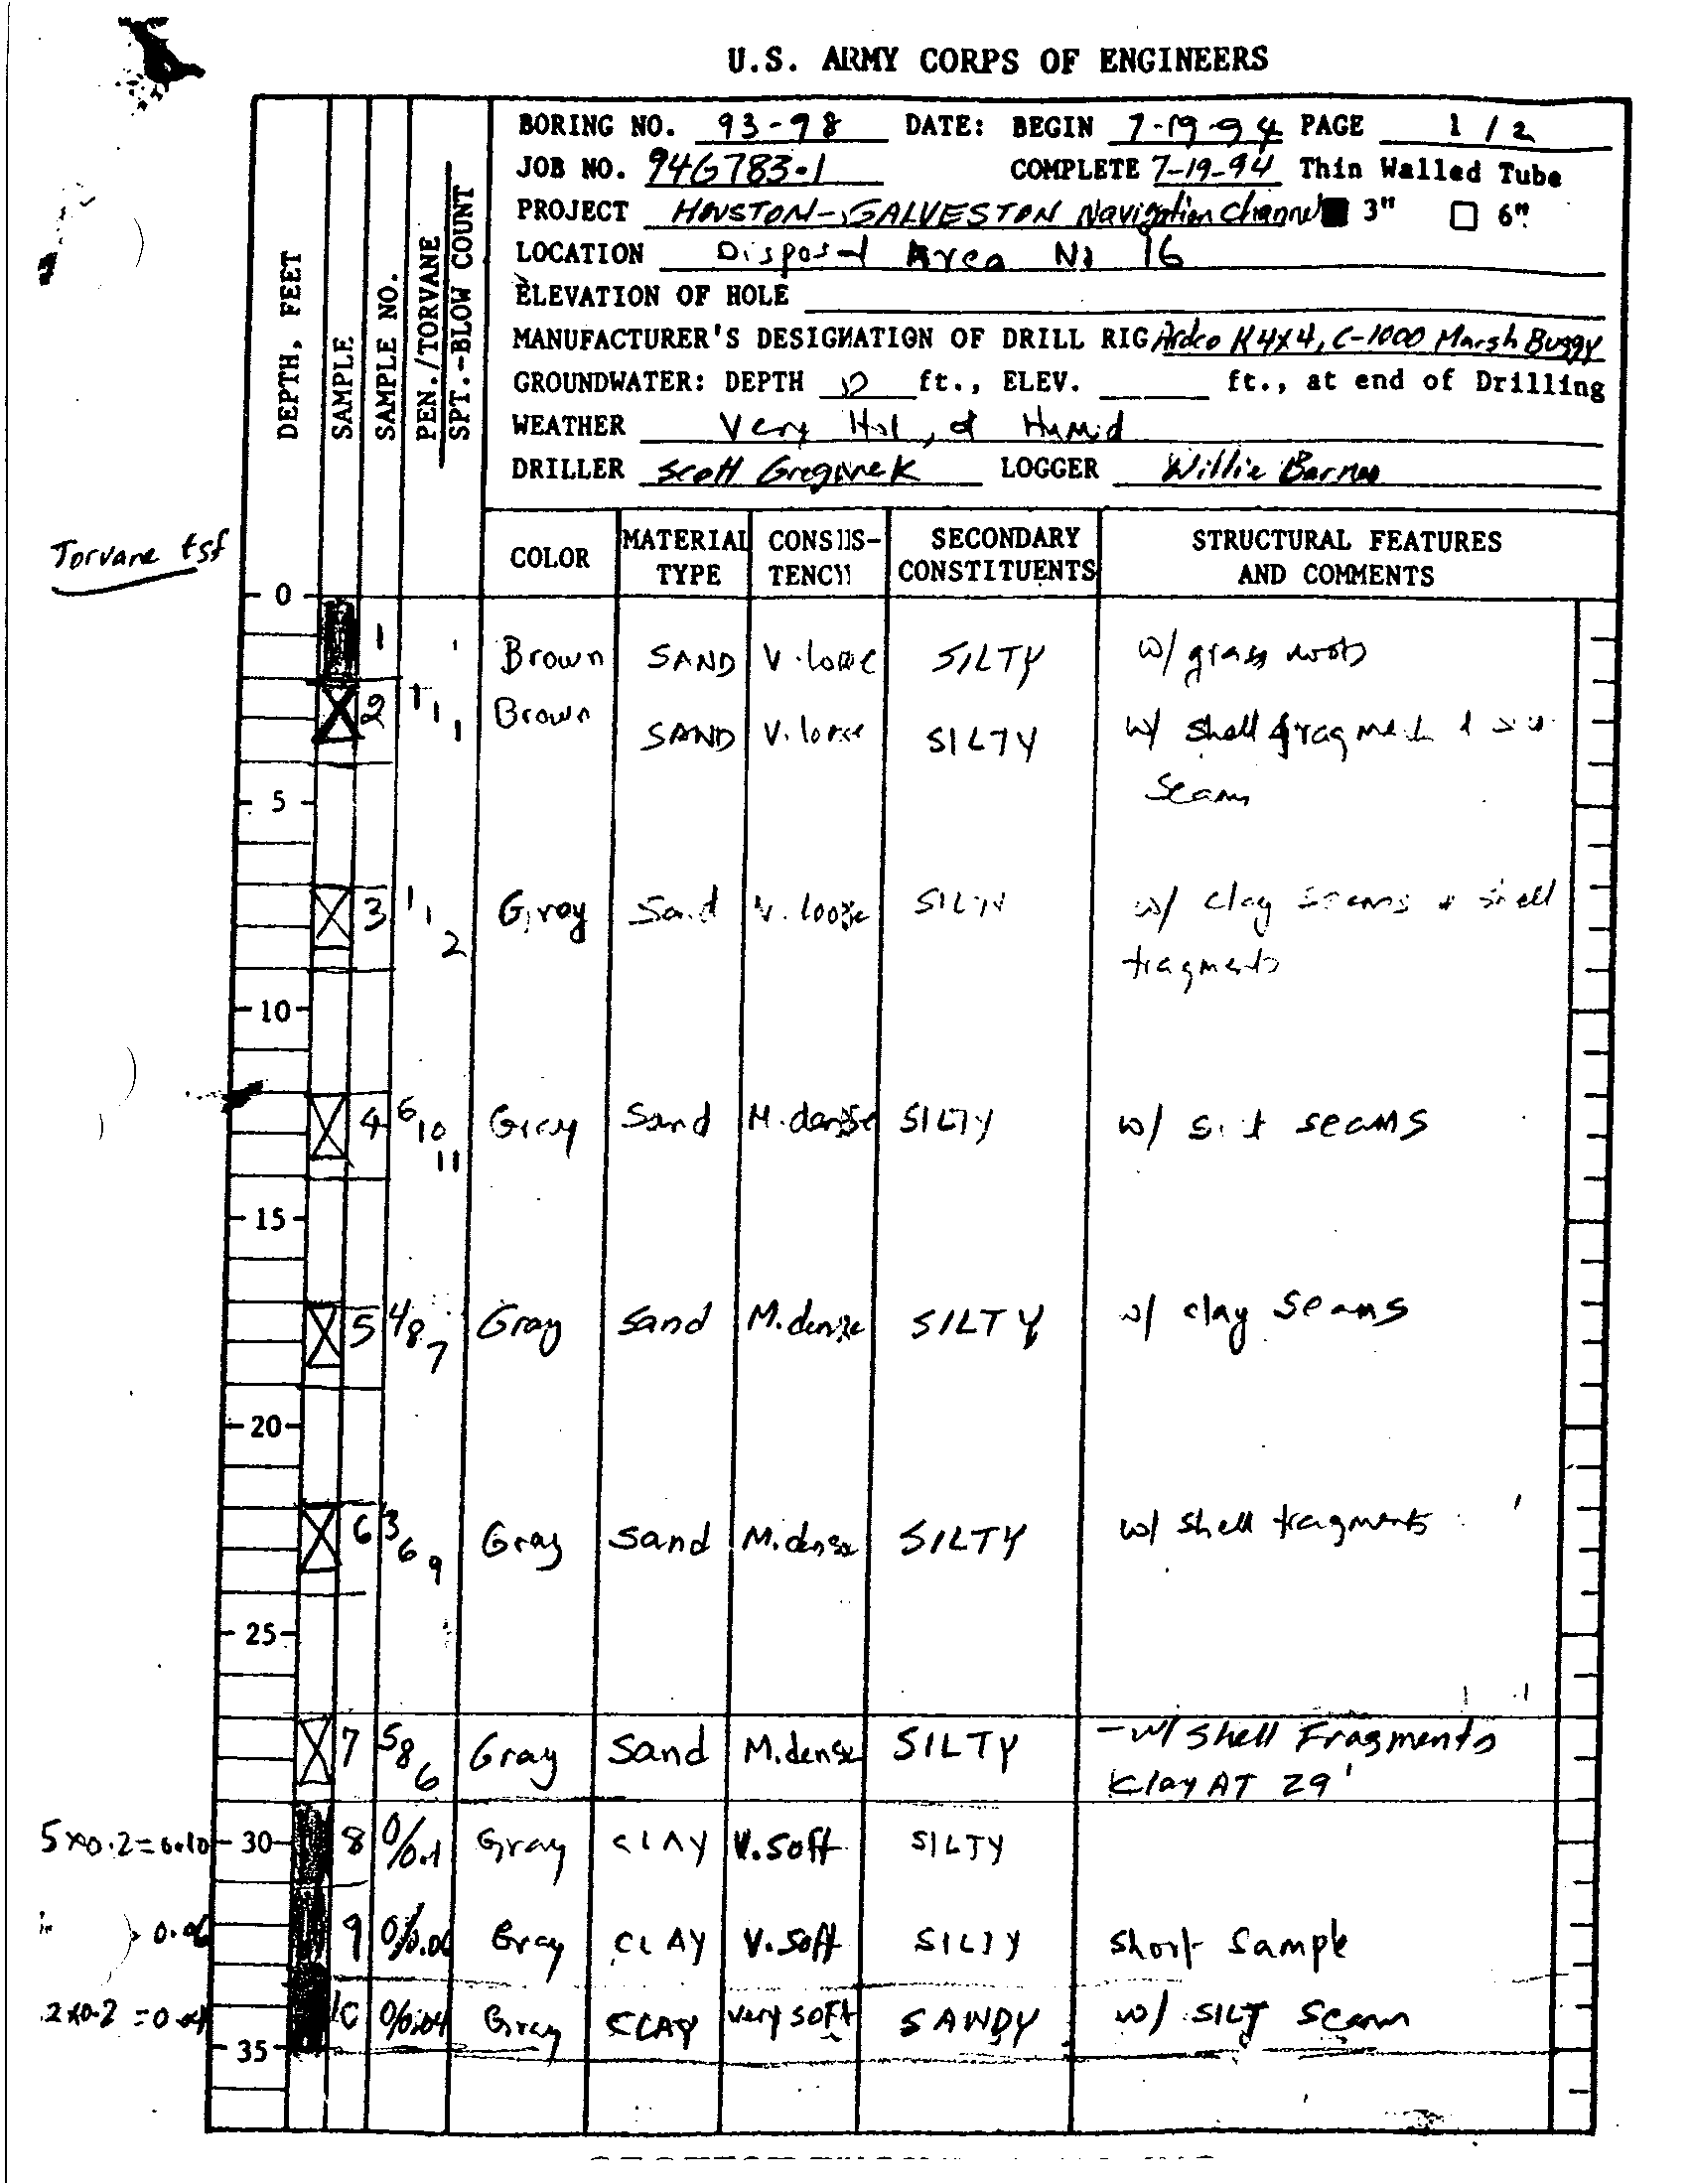 U.S. ARMY CORPS OF ENGINEERS
BORING NO. 93-98 DATE: BEGIN 7-19-94 PAGE 1 / 2
JOB NO. 94G783-1 COMPLETE 7-19-94 Thin Walled Tube
PROJECT HOUSTON-GALVESTON Navigation Channel 3" 6"
LOCATION Disposal Area No 16
ELEVATION OF HOLE
MANUFACTURER'S DESIGNATION OF DRILL RIG Ardco K4x4, C-1000 Marsh Buggy
GROUNDWATER: DEPTH ft., ELEV. ft., at end of Drilling
WEATHER Very Hot, & Humid
DRILLER Scott LOGGER Willie Barnes
DEPTH, FEET
SAMPLE
SAMPLE NO.
PEN./TORVANE
SPT.-BLOW COUNT
Torvane tsf
COLOR MATERIAL TYPE CONSISTENCY SECONDARY CONSTITUENTS STRUCTURAL FEATURES AND COMMENTS
0
1 Brown SAND V. loose SILTY w/ grass roots
2 1 1 1 Brown SAND V. loose SILTY w/ shell fragment &
seams
5
3 1 1 2 Gray Sand V. loose SILTY w/ clay seams & shell
fragments
10
4 6 10 11 Gray Sand M. dense SILTY w/ silt seams
15
5 4 8 7 Gray Sand M. dense SILTY w/ clay seams
20
6 3 6 9 Gray Sand M. dense SILTY w/ shell fragments
25
7 5 8 6 Gray Sand M. dense SILTY - w/ Shell Fragments
Clay AT 29'
5x0.2=0.10 30 8 0/0.1 Gray CLAY V. Soft SILTY
0.06 9 0/0.06 Gray CLAY V. Soft SILTY short Sample
.2x0.2=0.04 10 0/0.04 Gray CLAY very soft SANDY w/ SILT Seam
35